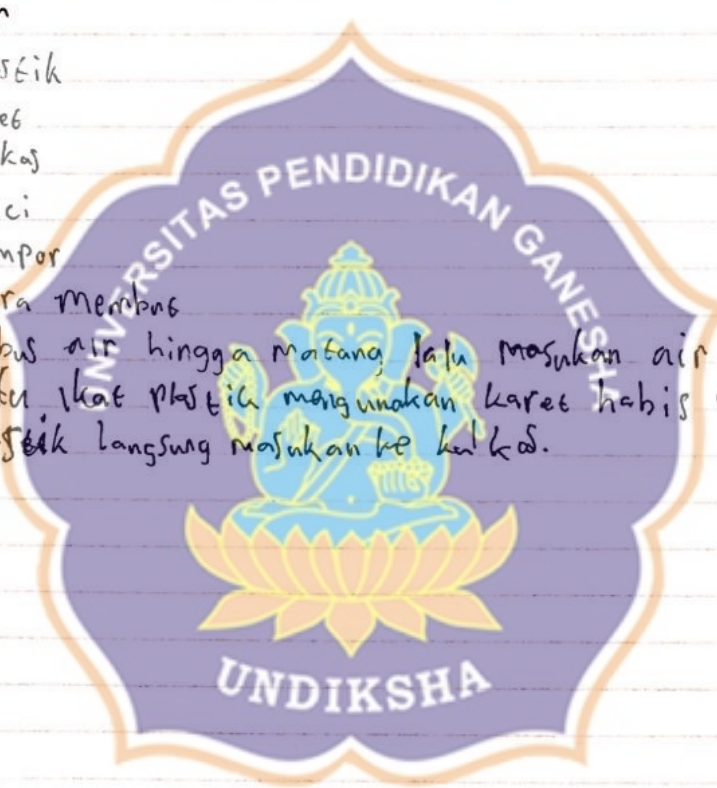 n
stik
et
kas
ci
mpor
ra membuat
bus air hingga matang lalu masukan air
lu ikat plastik mengunakan karet habis
stik langsung masukan ke kulkas.
UNIVERSITAS PENDIDIKAN GANESHA
UNDIKSHA